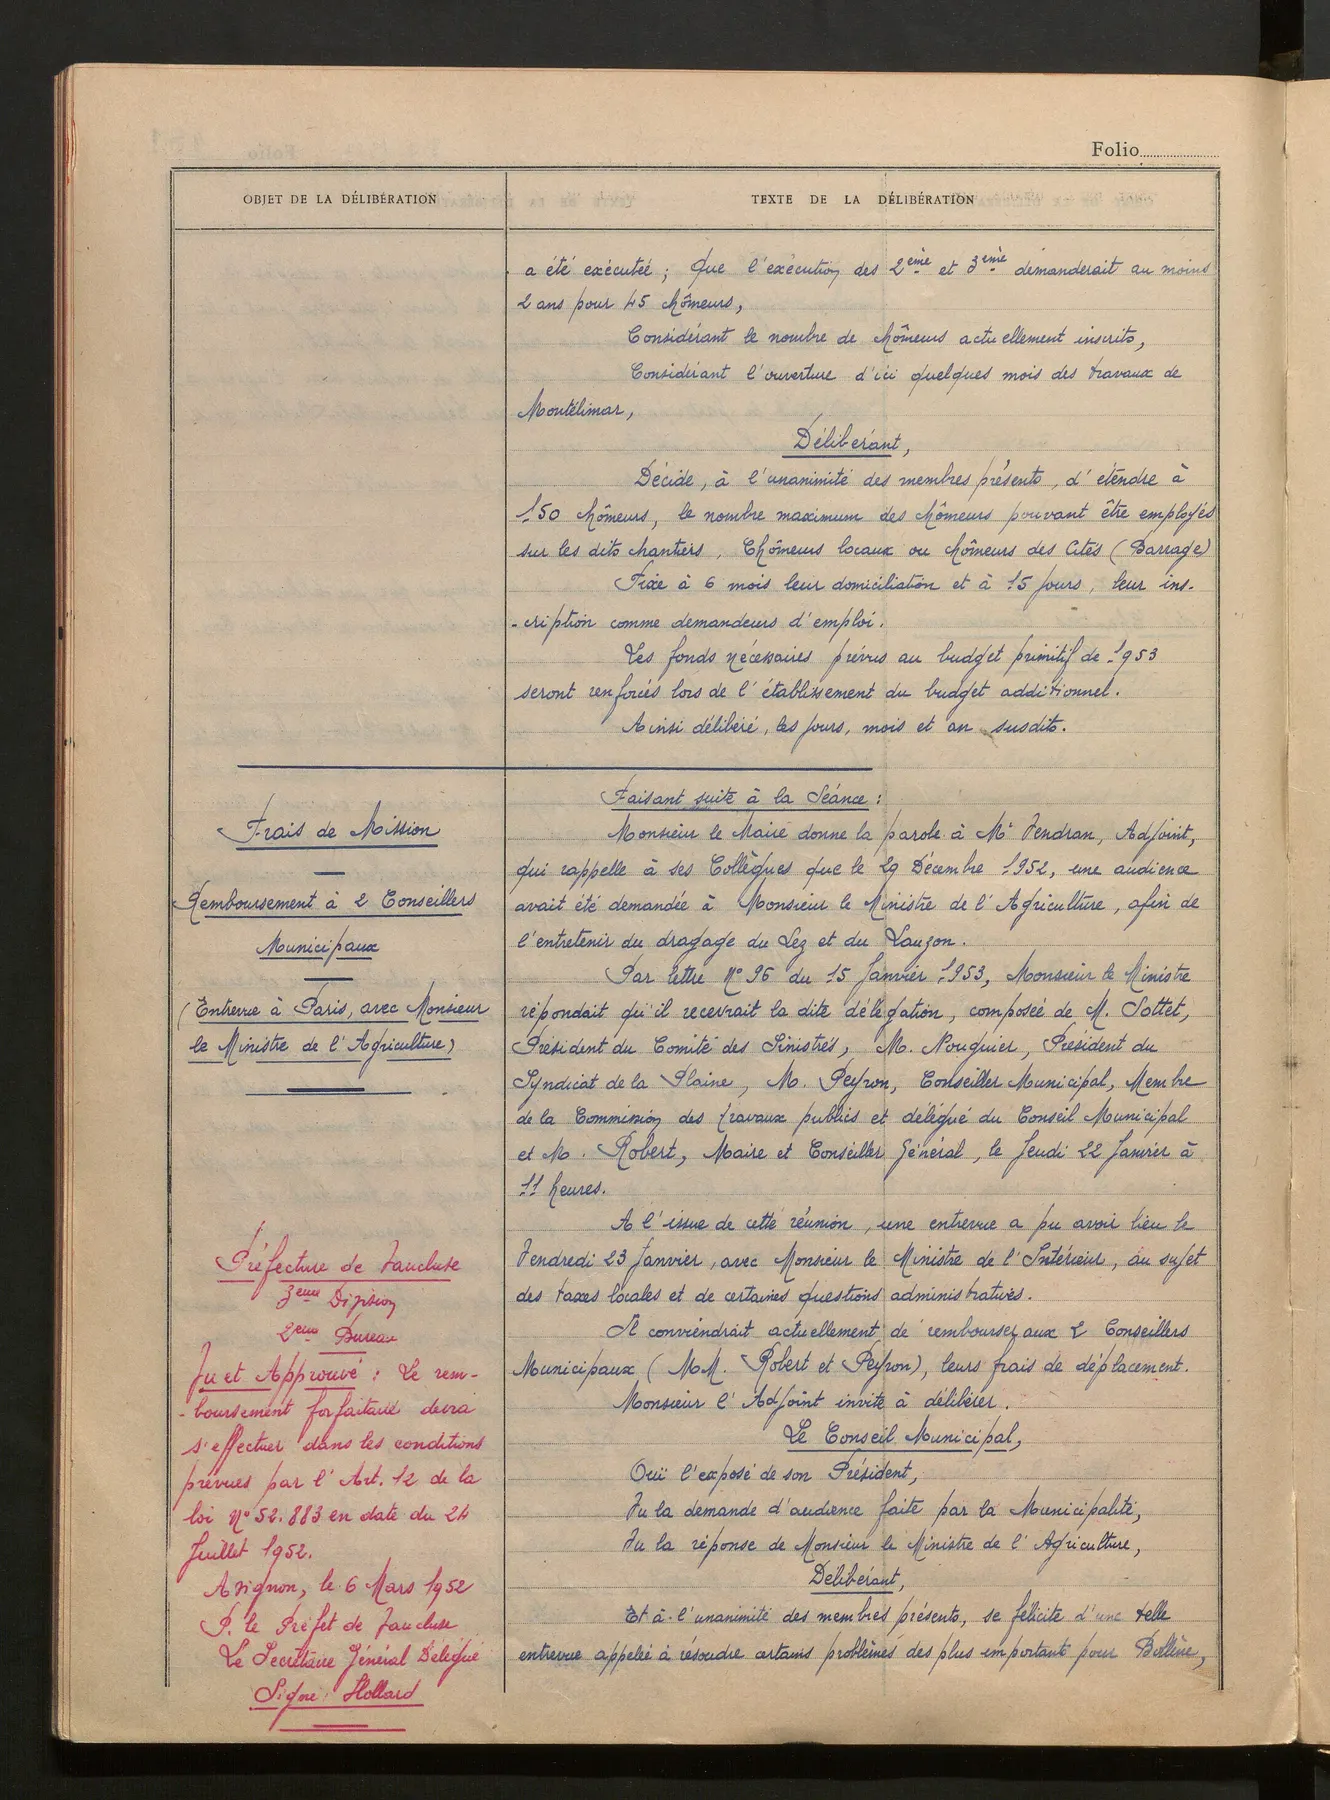 Folio
OBJET DE LA DÉLIBÉRATION
TEXTE DE LA DÉLIBÉRATION
a été exécutéé ; Que l'exécution des 2ème et 3ème demanderait au moins
2 ans pour 45 chômeurs,
Considérant le nombre de chômeurs actuellement inscrits,
Considérant l'ouverture d'ici quelques mois des travaux de
Montélimar,
Délibérant,
Décide, à l'unanimité des membres présents, d'étendre à
150 chômeurs, le nombre maximum des chômeurs pouvant être employés
sur les dits chantiers, Chômeurs locaux ou chômeurs des Cités (Barrage)
Fixe à 6 mois leur domiciliation et à 15 jours, leur ins-
-cription comme demandeurs d'emploi.
Les fonds nécessaires prévus au budget primitif de 1953
seront renforcés lors de l'établissement du budget additionnel.
Ainsi délibéré, les jours, mois et an susdits.
Frais de Mission
Remboursement à 2 Conseillers
Municipaux
(Entrevue à Paris, avec Monsieur
le Ministre de l'Agriculture)
Faisant suite à la Séance :
Monsieur le Maire donne la parole à Mr Vendran, Adjoint,
qui rappelle à ses Collègues que le 29 Décembre 1952, une audience
avait été demandée à Monsieur le Ministre de l'Agriculture, afin de
l'entretenir du dragage du Lez et du Lauzon.
Par lettre N° 96 du 15 Janvier 1953, Monsieur le Ministre
répondait qu'il recevrait la dite délégation, composée de M. Sottet,
Président du Comité des Sinistrés, M. Nouguier, Président du
Syndicat de la Plaine, M. Peyron, Conseiller Municipal, Membre
de la Commission des travaux publics et délégué du Conseil Municipal
et M. Robert, Maire et Conseiller Général, le Jeudi 22 Janvier à
11 heures.
A l'issue de cette réunion, une entrevue a pu avoir lieu le
Vendredi 23 Janvier, avec Monsieur le Ministre de l'Intérieur, au sujet
des taxes locales et de certaines questions administratives.
Il conviendrait actuellement de rembourser aux 2 Conseillers
Municipaux (MM. Robert et Peyron), leurs frais de déplacement.
Monsieur l'Adjoint invite à délibérer.
Le Conseil Municipal,
Ouï l'exposé de son Président,
Vu la demande d'audience faite par la Municipalité,
Vu la réponse de Monsieur le Ministre de l'Agriculture,
Délibérant,
Et à l'unanimité des membres présents, se félicite d'une telle
entrevue appelée à résoudre certains problèmes des plus importants pour Bollène,
Préfecture de Vaucluse
3ème Division
2ème Bureau
Vu et Approuvé : Le rem-
-boursement forfaitaire devra
s'effectuer dans les conditions
prévues par l'Art. 12 de la
loi N° 52.883 en date du 24
Juillet 1952.
Avignon, le 6 Mars 1952
P. le Préfet de Vaucluse
Le Secrétaire Général Délégué
Signé : Hollard